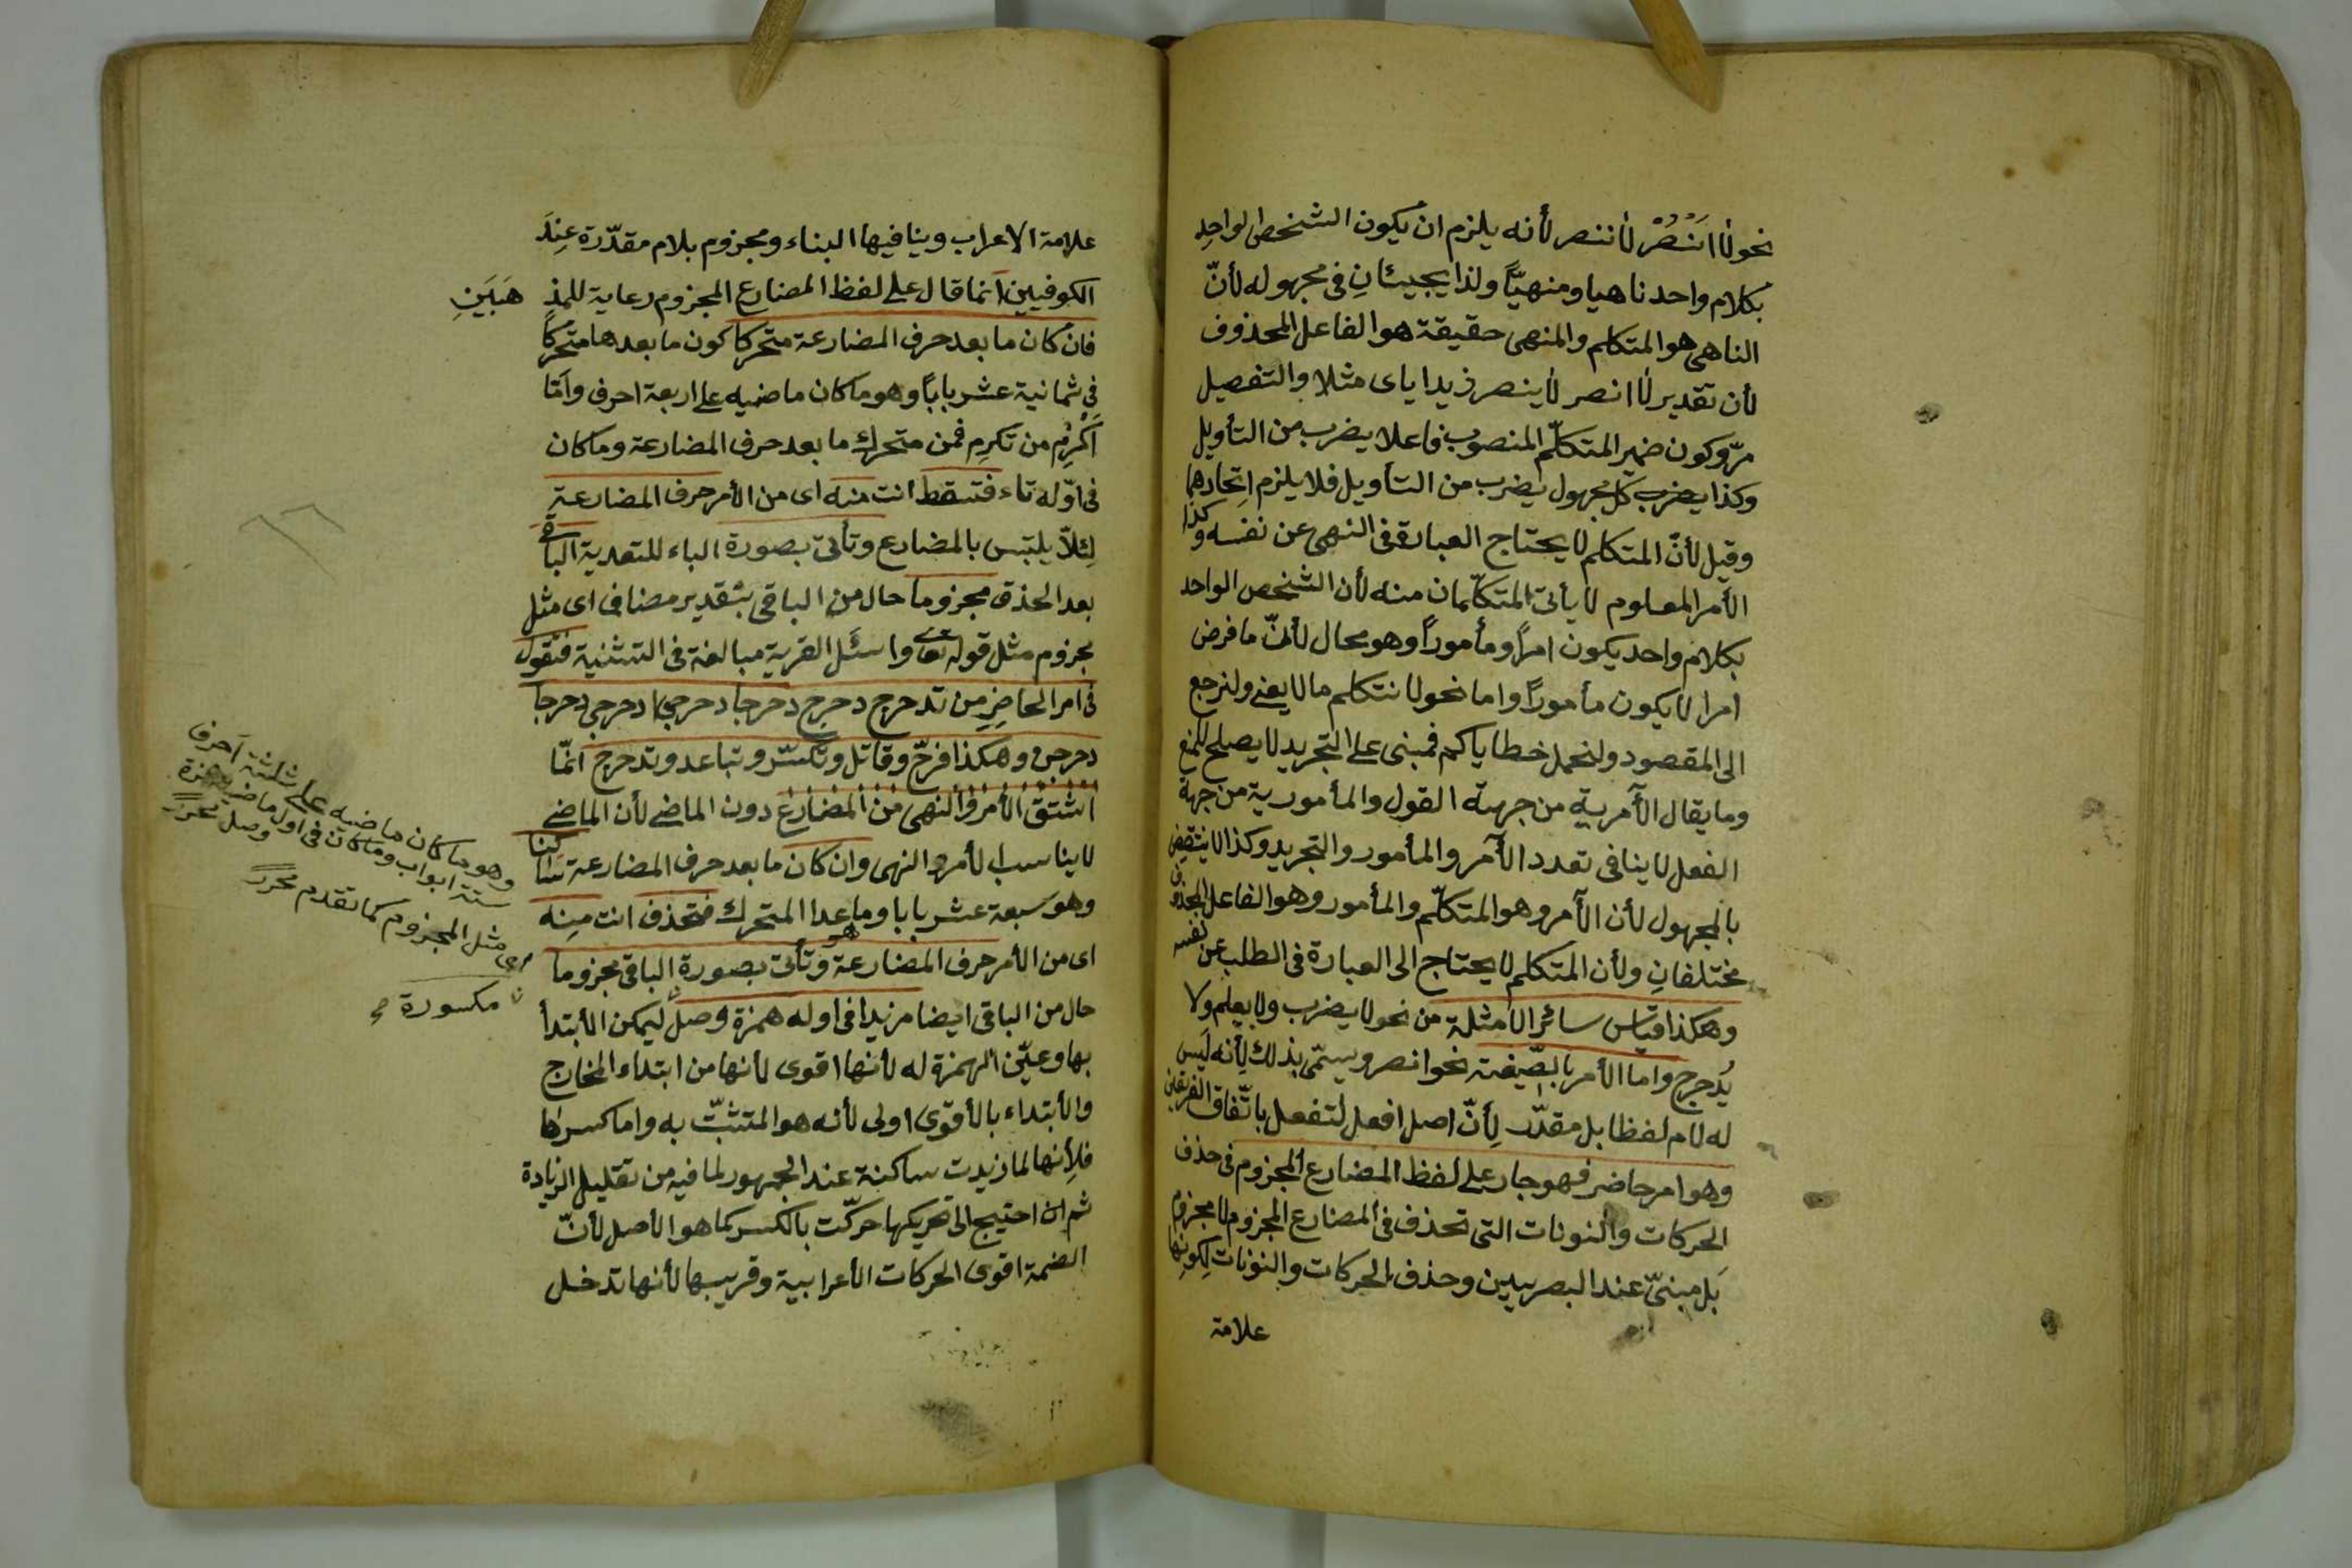 نحو لا اَنْصُرْ لا ننصر لأنه يلزم ان يكون الشخص الواحد
بكلام واحد ناهيا ومنهيّاً ولذا يجيئانِ فى مجهوله لأنّ
الناهى هو المتكلم والمنهى حقيقة هو الفاعل المحذوف
لأن تقدير لا انصر لا ينصر زيد اياى مثلا والتفصيل
مرّ وكون ضمير المتكلّم المنصوب فاعلا يضرب من التأويل
وكذا يضرب كل مجهول يضرب من التأويل فلا يلزم اتحادهما
وقيل لأنّ المتكلم لا يحتاج العبارة فى النهى عن نفسه وكذا
الأمر المعلوم لا يأتى المتكلّمان منه لأن الشخص الواحد
بكلام واحد يكون امراً ومأموراً وهو محال لأنّ ما فرض
امرا لا يكون مأموراً واما نحو لا نتكلم ما لا يعنى ولنرجع
الى المقصود ولنحمل خطاياكم فمبنى على التجريد لا يصلح للمنع
وما يقال الآمرية من جهة القول والمأمورية من جهة
الفعل لا ينافى تعدد الآمر والمأمور والتجريد وكذا لا ينتقض
بالمجهول لأن الآمر وهو المتكلّم والمأمور وهو الفاعل المحذوف
مختلفانِ ولأن المتكلم لا يحتاج الى العبارة فى الطلب عن نفسه
وهكذا قياس سائر الأمثلة من نحو لا يضرب ولا يعلم ولا
يُدحرج واما الأمر بالصّيغة نحو انصر وسمّى بذلك لأنه ليس
له لام لفظا بل مقدّر لأنّ اصل افعل لتفعل باتّفاق الفريقين
وهو امر حاضر فهو جار على لفظ المضارع المجزوم فى حذف
الحركات والنونات التى تحذف فى المضارع المجزوم لا مجزوم
بَل مبنىّ عند البصريين وحذف الحركات والنونات لكونها
علامة
علامة الاعراب وينافيها البناء ومجزوم بلام مقدّرة عِندَ
الكوفيين انما قال على لفظ المضارع المجزوم رعاية للمذ هبَين
فان كان ما بعد حرف المضارعة متحركا كون ما بعدها متحركا
فى ثمانية عشر باباً وهو ما كان ماضيه على اربعة احرف وامّا
اَكْرِمْ من تكرِم فمن متحرك ما بعد حرف المضارعة وما كان
فى اوّله تاء فتسقط انت منه اى من الأمر حرف المضارعة
لِئلاّ يلتبس بالمضارع وتأتى بصورة الباء للتعدية الباقى
بعد الحذف مجزوما حال من الباقى بتقدير مضاف اى مثل
مجزوم مثل قوله تعالى واسئل القرية مبالغة فى التثنية فتقول
فى امر الحاضر من تدحرج دحرج دحرجا دحرجوا دحرجى دحرجا
دحرجن وهكذا فرّح وقاتل وتكسّر وتباعد وتدحرج انّما
اشتق الأمر والنهى من المضارع دون الماضى لأن الماضى
لا يناسب الأمر والنهى وان كان ما بعد حرف المضارعة ساكنا
وهو سبعة عشر بابا وما عدا المتحرك فتحذف انت منه
اى من الأمر حرف المضارعة وتأتى بصورة الباقى مجزوما
حال من الباقى ايضا مزيدا فى اوله همزة وصل ليمكن الأبتدأ
بها وعيّن الهمزة له لأنها اقوى لأنها من ابتداء المخارج
والأبتداء بالأقوى اولى لأنه هو المتشبّث به واما كسرها
فلأنها لما زيدت ساكنة عند الجمهور لما فيه من تقليل الزيادة
ثم ان احتيج الى تحريكها حرّكت بالكسر كما هو الأصل لأنّ
الضمة اقوى الحركات الأعرابية وقريبها لأنها تدخل
وهو ما كان ماضيه على ثلثة اَحرف
ستة ابواب وما كان فى اول ماضيه همزة
وصل محرر
اى مثل المجزوم كما تقدم محرر
مكسورة